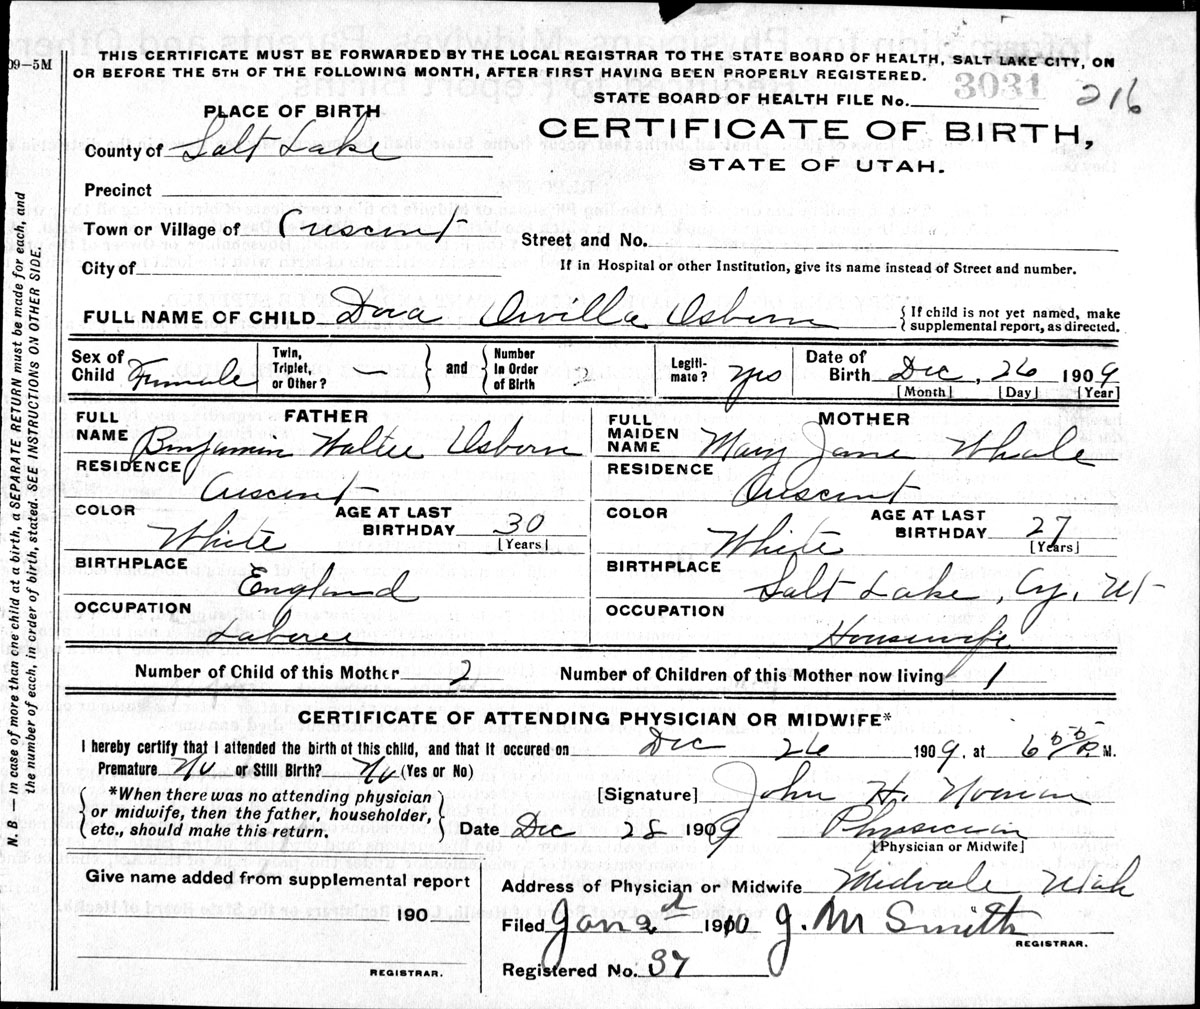 09–5M
THIS CERTIFICATE MUST BE FORWARDED BY THE LOCAL REGISTRAR TO THE STATE BOARD OF HEALTH, SALT LAKE CITY, ON
OR BEFORE THE 5TH OF THE FOLLOWING MONTH, AFTER FIRST HAVING BEEN PROPERLY REGISTERED.
STATE BOARD OF HEALTH FILE No. 3031 216
PLACE OF BIRTH
CERTIFICATE OF BIRTH,
STATE OF UTAH.
County of Salt Lake
Precinct
Town or Village of Crescent
Street and No.
City of
If in Hospital or other Institution, give its name instead of Street and number.
FULL NAME OF CHILD Dora Orvilla Osborn
If child is not yet named, make
supplemental report, as directed.
Sex of Child Female
Twin, Triplet, or Other? —
and
Number In Order of Birth
Legitimate? yes
Date of Birth Dec, 26 1909
[Month] [Day] [Year]
FATHER
FULL NAME Benjamin Walter Osborn
RESIDENCE
Crescent
COLOR White
AGE AT LAST BIRTHDAY 30
[Years]
BIRTHPLACE
England
OCCUPATION
Laborer
MOTHER
FULL MAIDEN NAME Mary Jane Whale
RESIDENCE
Crescent
COLOR White
AGE AT LAST BIRTHDAY 27
[Years]
BIRTHPLACE
Salt Lake, Cy, Ut
OCCUPATION
Housewife
Number of Child of this Mother 2 Number of Children of this Mother now living 1
CERTIFICATE OF ATTENDING PHYSICIAN OR MIDWIFE*
I hereby certify that I attended the birth of this child, and that it occured on Dec 26 1909, at 6 55 P. M.
Premature No or Still Birth? No (Yes or No)
*When there was no attending physician
or midwife, then the father, householder,
etc., should make this return.
[Signature] John H. Noonan
Date Dec 28 1909 Physician
[Physician or Midwife]
Give name added from supplemental report
190
REGISTRAR.
Address of Physician or Midwife Midvale Utah
Filed Jan 2d 1910 J. M Smith
REGISTRAR.
Registered No. 37
N. B. — In case of more than one child at a birth, a SEPARATE RETURN must be made for each, and
the number of each, in order of birth, stated. SEE INSTRUCTIONS ON OTHER SIDE.